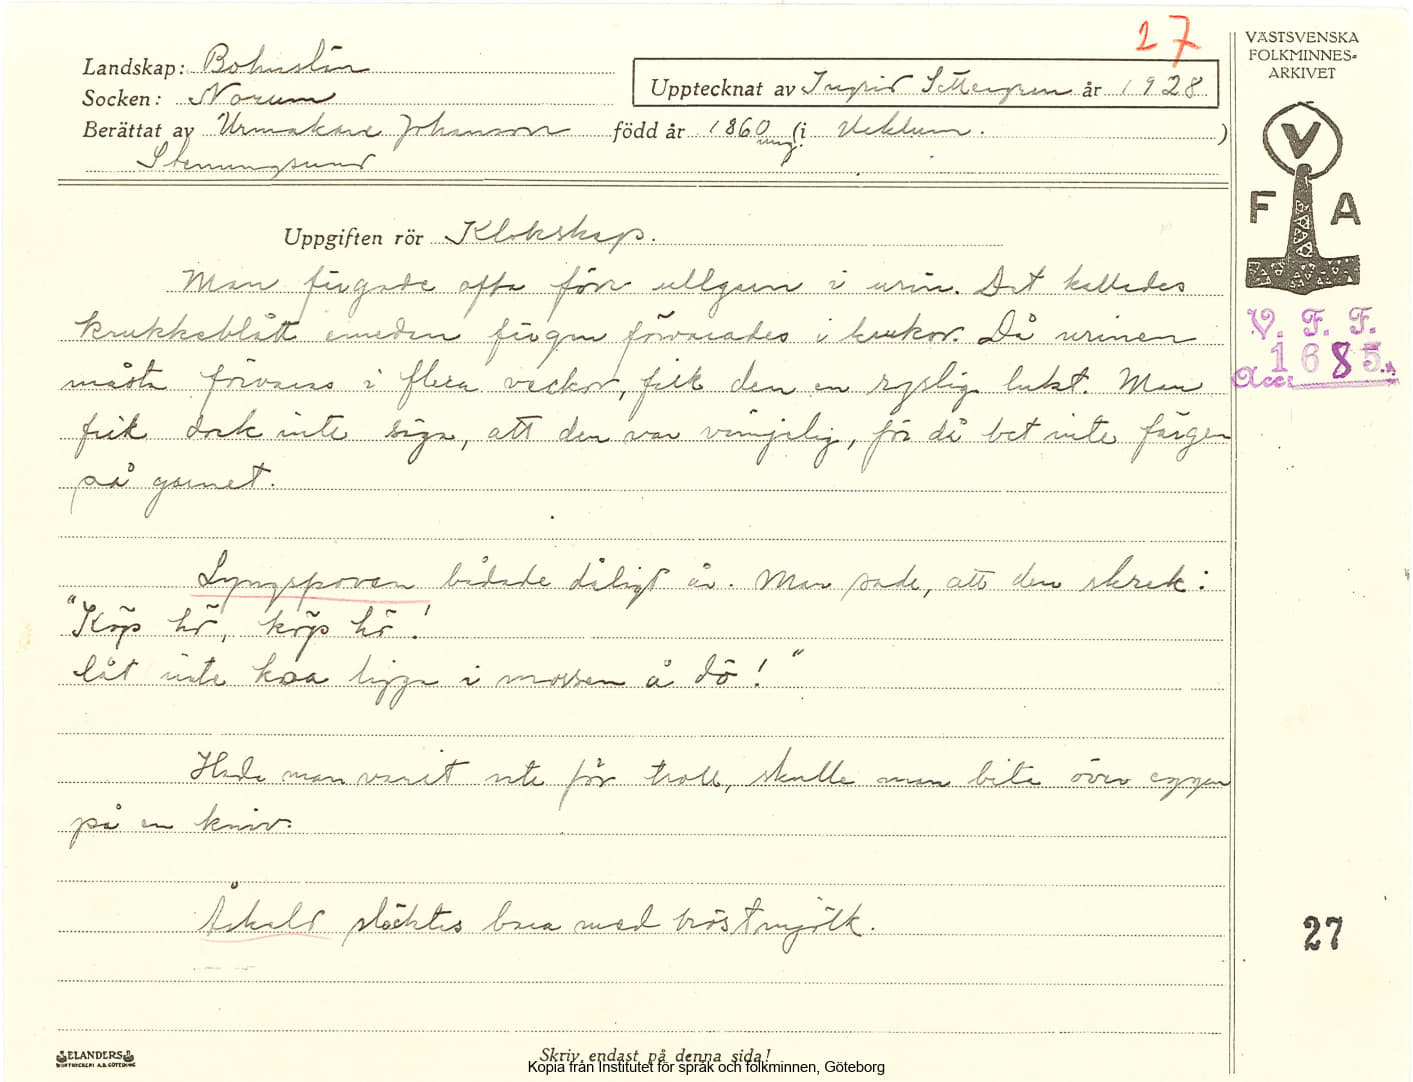 27
VÄSTSVENSKA
FOLKMINNES-
ARKIVET
Landskap: Bohuslän
Socken: Norum
Upptecknat av Ingrid Settergren år 1928
Berättat av Urmakare Johansson född år 1860 (i Ucklum.)
ung.
Stenungsund
V
F A
Uppgiften rör Klokskap.
Man färgade ofta förr ullgarn i urin. Det kallades
krukkeblått emedan färgen förvarades i krukor. Då urinen
måste förvaras i flera veckor, fick den en ryslig lukt. Man
fick dock inte säga, att den var vämjelig, för då bet inte färgen
på garnet.
V. F. F.
Acc: 1685
Lyngspoven bådade dåligt år. Man sade, att den skrek:
"Köp hö, köp hö!
låt inte koa ligga i mossen å dö!"
Hade man varit ute för troll, skulle man bita över eggen
på en kniv.
Åskeld släcktes bara med bröstmjölk.
27
ELANDERS
BOKTRYCKERI A.B. GÖTEBORG
Skriv endast på denna sida!
Kopia från Institutet för språk och folkminnen, Göteborg